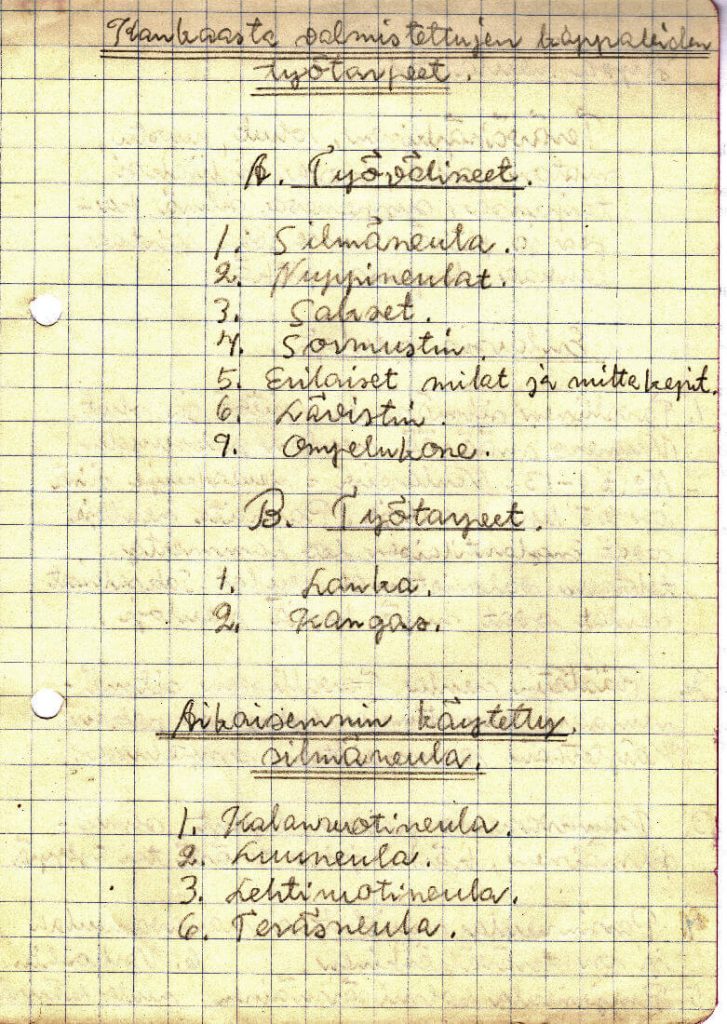 Kankaasta valmistettujen kappaleiden
työtarpeet.
A. Työvälineet.
1. Silmäneula.
2. Nuppineulat.
3. Sakset.
4. Sormustin.
5. Erilaiset mitat ja mittakepit.
6. Lävistin.
7. Ompelukone.
B. Työtarpeet.
1. Lanka.
2. Kangas.
Aikaisemmin käytetty
silmäneula.
1. Kalanruotineula.
2. Luuneula.
3. Lehtiruotineula.
6. Teräsneula.